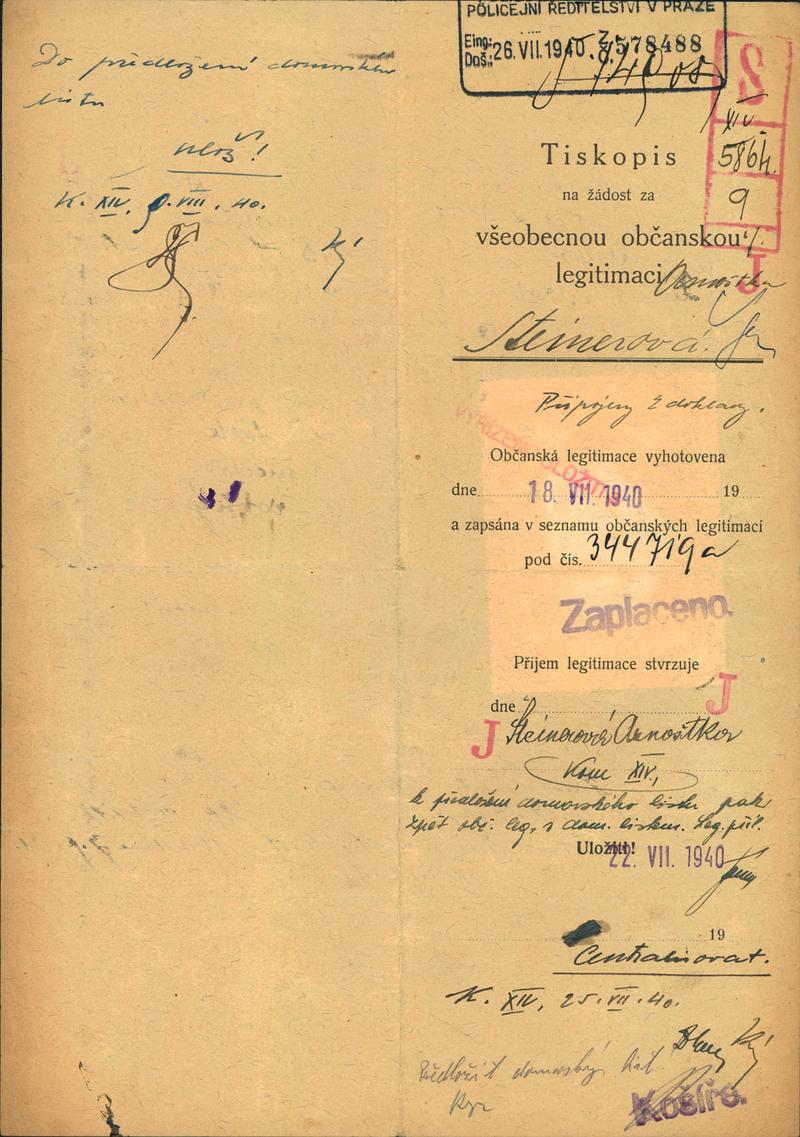 Do předložení domovského
listu
ulož!
K. XIV. 9. VIII. 40.
POLICEJNÍ ŘEDITELSTVÍ V PRAZE
Eing.:
Doš.: 26. VII. 1940. Z. 578488
2
XIV
586
9
Tiskopis
na žádost za
všeobecnou občanskou
legitimaci Arnoštka
J
Steinerová.
Připojeny 2 doklady.
VYŘÍZENO ULOŽIT
Občanská legitimace vyhotovena
dne 18. VII. 1940 19
a zapsána v seznamu občanských legitimací
pod čís. 344719a
Zaplaceno.
Příjem legitimace stvrzuje
dne
J
J
Steinerová Arnoštka
Kom XIV,
k předložení domovského listu pak
zpět obč. leg. s dom. listem. Leg. příl.
Uložiti!
22. VII. 1940
19
Centralisovat.
K. XIV, 25. VII. 40.
Předložit domovský list
Košíře.